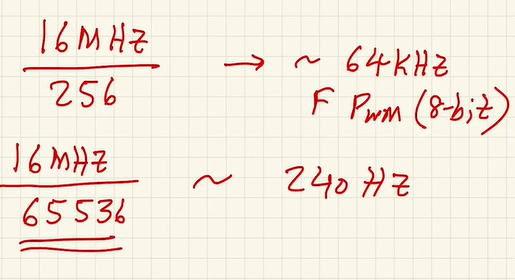 16MHz
256
→ ~ 64kHz
F Pwm (8-bit)
16MHz
65536
~ 240 Hz